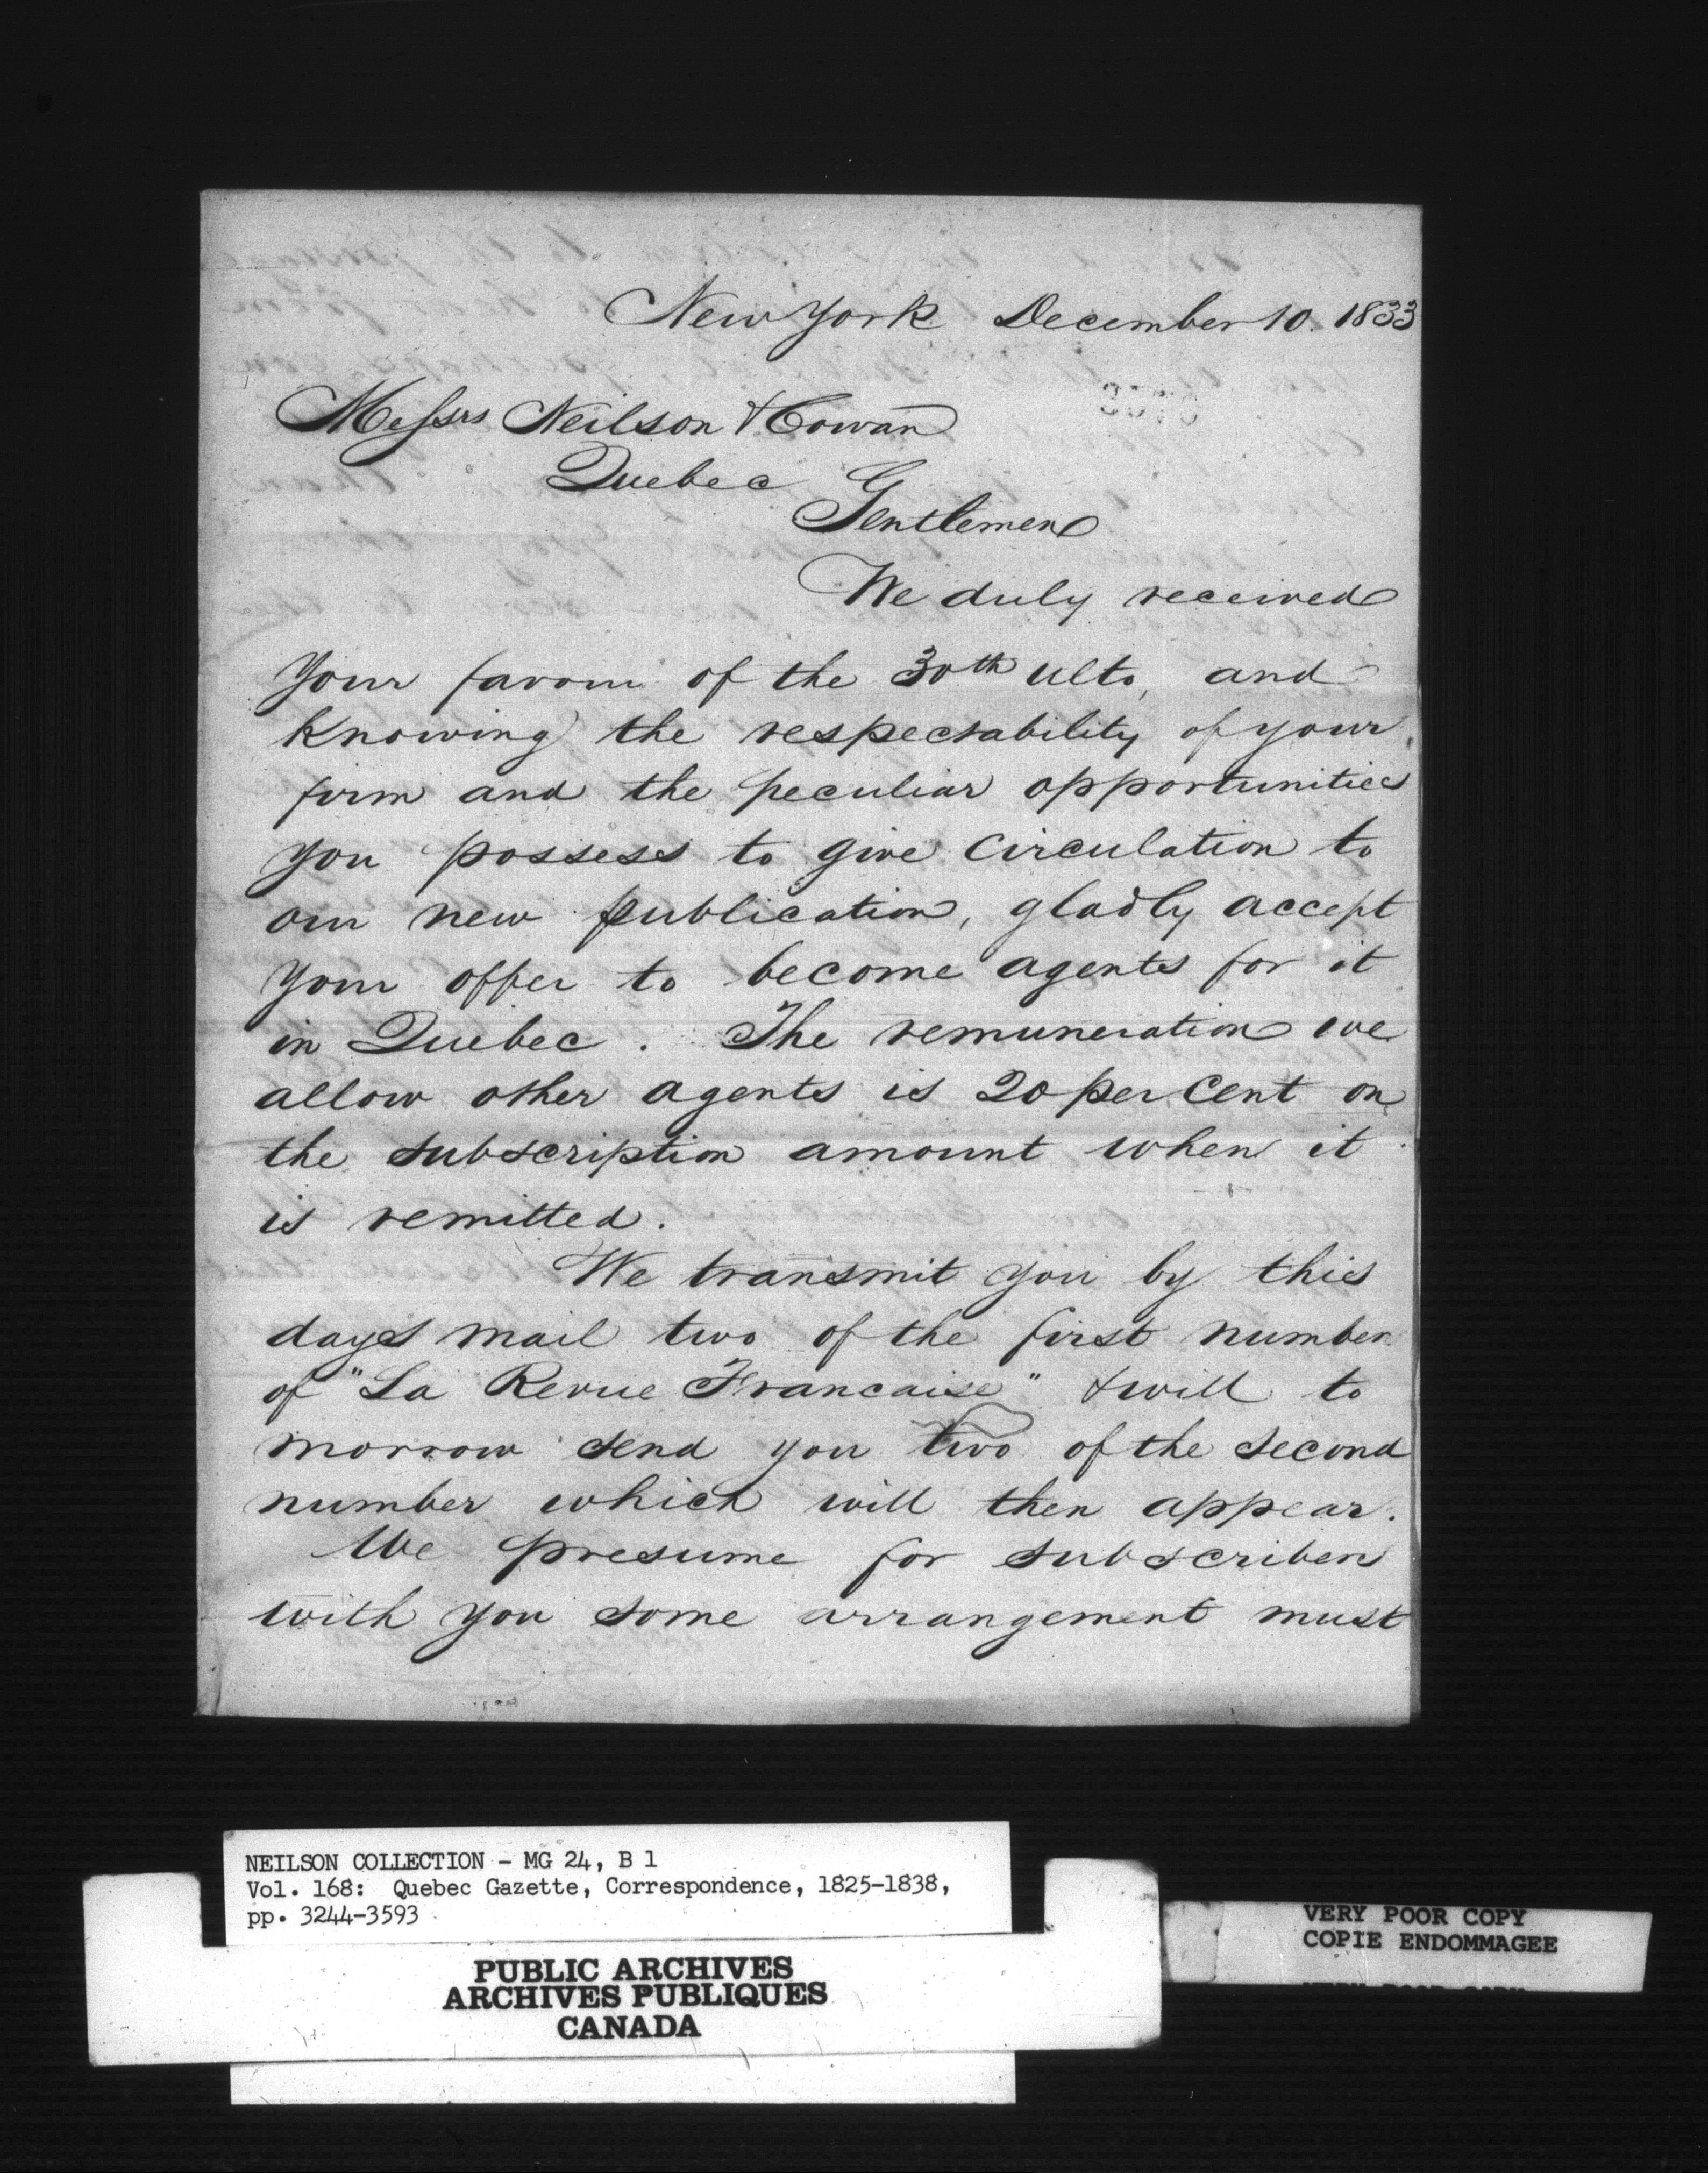 New York December 10. 1833
Messrs Neilson & Cowan
Quebec
Gentlemen
We duly received
your favour of the 30th ulto, and
knowing the respectability of your
firm and the peculiar opportunities
you possess to give circulation to
our new publication, gladly accept
your offer to become agents for it
in Quebec. The remuneration we
allow other agents is 20 per Cent on
the subscription amount when it
is remitted.
We transmit you by this
days mail two of the first number
of "La Revue Francaise" & will to
morrow send you two of the second
number which will then appear.
We presume for subscribers
with you some arrangement must
NEILSON COLLECTION - MG 24, B 1
Vol. 168: Quebec Gazette, Correspondence, 1825-1838,
pp. 3244-3593
PUBLIC ARCHIVES
ARCHIVES PUBLIQUES
CANADA
VERY POOR COPY
COPIE ENDOMMAGEE
VERY POOR COPY